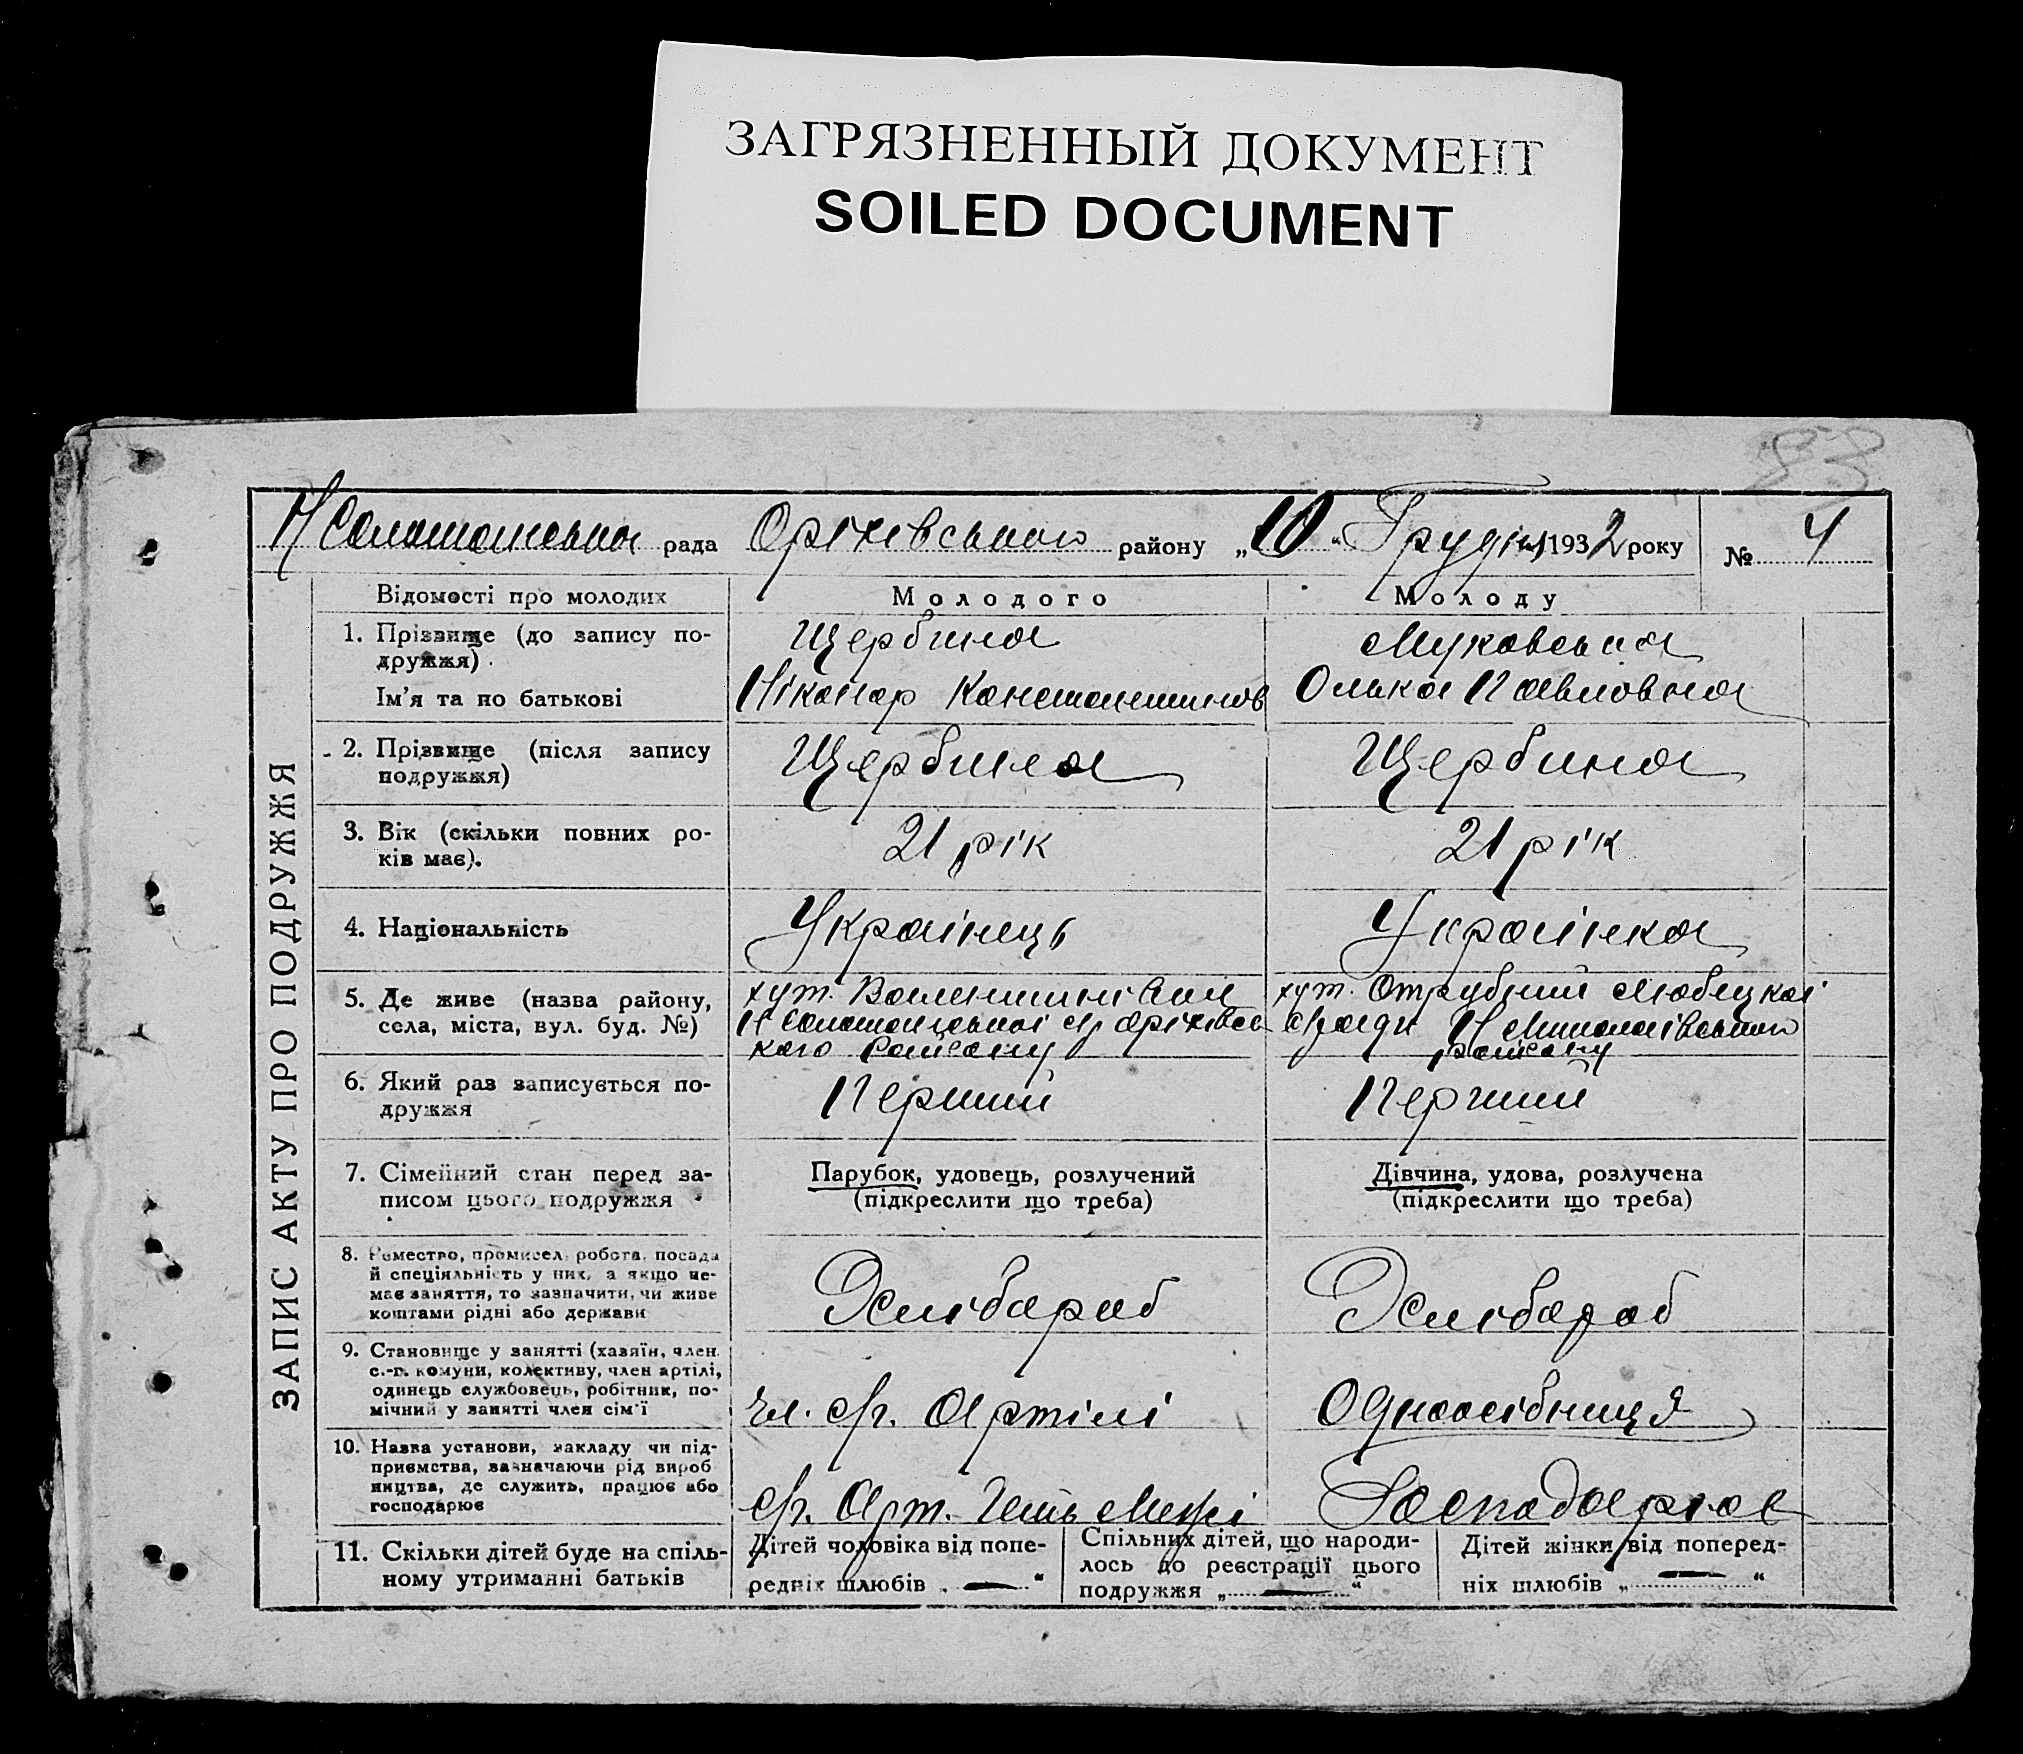 ЗАГРЯЗНЕННЫЙ ДОКУМЕНТ
SOILED DOCUMENT
рада Оріхівського району „10“ Грудня 1932 року № 4
ЗАПИС АКТУ ПРО ПОДРУЖЖЯ
Відомості про молодих Молодого Молоду
1. Прізвище (до запису по-
дружжя).
Щербина
Ім'я та по батькові
Ніканор Константинов Олька Павловна
2. Прізвище (після запису
подружжя)
Щербина Щербина
3. Вік (скільки повних ро-
ків має).
21 рік 21 рік
4. Національність Українець Українка
5. Де живе (назва району,
села, міста, вул. буд. №)
хут.
кого району
хут. Отрубний Любицкої
с/ради
району
6. Який раз записується по-
дружжя
Перший Перший
7. Сімейний стан перед за-
писом цього подружжя
Парубок, удовець, розлучений
(підкреслити що треба)
Дівчина, удова, розлучена
(підкреслити що треба)
8. Ремество, промисел, робота, посада
й спеціяльність у них, а якщо не-
має заняття, то зазначити, чи живе
коштами рідні або держави
Хлібараб Хлібараб
9. Становище у занятті (хазяїн, член
с.-г. комуни, колективу, член артілі,
одинець службовець, робітник, по-
мічний у занятті член сім'ї
чл. с/г. Артілі Одноосібниця
10. Назва установи, закладу чи під-
приємства, зазначаючи рід вироб
ництва, де служить, працює або
господарює
с/г. Арт. Господарює
11. Скільки дітей буде на спіль-
ному утриманні батьків
Дітей чоловіка від попе-
редніх шлюбів „ — “
Спільних дітей, що народи-
лось до реєстрації цього
подружжя „ — “
Дітей жінки від поперед-
ніх шлюбів „ — “